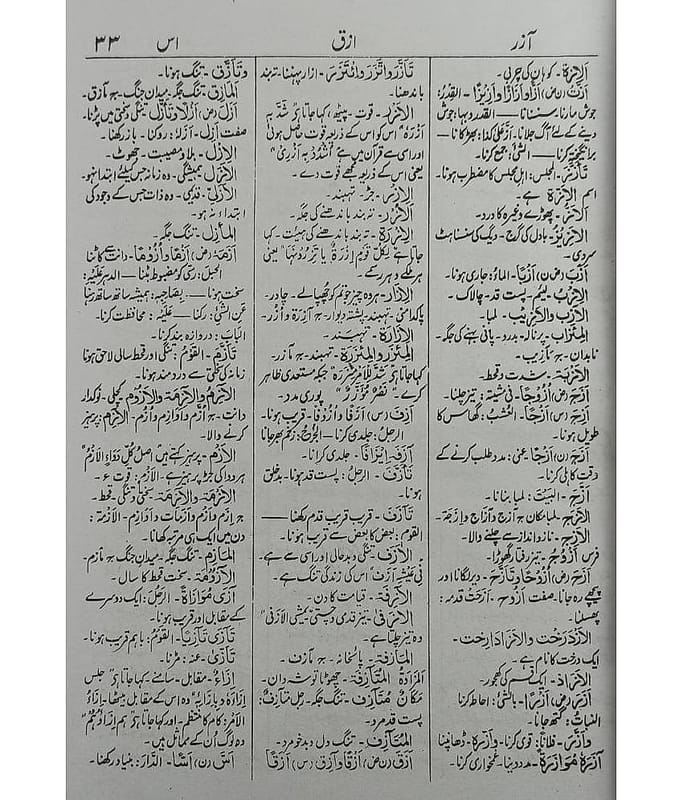 آزر ازق اس ۳۳
الاِزَةُ۔ کوہان کی چربی۔
اَزَّتْ (ن ض) اَزًّا وَاَزَازًا وَاَزِیْزًا۔ القِدْرُ:
جوش مارنا، سنسنانا — القِدرَ وبہا: جوش
دینے کے لئے آگ جلانا۔ اَزَّ عَلٰی کذا: بھڑکانا —
برانگیختہ کرنا — الشَّیْءَ: جمع کرنا۔
تَاَزَّزَ۔ المجلس: اہل مجلس کا مضطرب ہونا۔
اسم الاَزَّةُ ہے۔
الاَزَزُ۔ پھوڑے وغیرہ کا درد۔
الاَزِیْزُ۔ بادل کی گرج۔ دیگ کی سنسناہٹ
سردی۔
اَزَبَ (ض ن) اَزْبًا۔ الماءُ: جاری ہونا۔
الاِزْبُ۔ لئیم۔ پست قد۔ چالاک۔
الآزِبُ والاَزِیْبُ۔ لمبا۔
المِئْزَابُ۔ پرنالہ۔ بدرو۔ پانی بہنے کی جگہ۔
نابدان ج مآزیب۔
الاَزْبَةُ۔ شدت و قحط۔
اَزَجَ (ض) اُزُوْجًا۔ فی مشیتہ: تیز چلنا۔
اَزِجَ (س) اَزَجًا۔ العُشْبُ: گھاس کا
طویل ہونا۔
اَزَجَ (ن) اَزْجًا۔ عنی: مدد طلب کرنے کے
وقت کاہلی کرنا۔
اَزَّجَ۔ البَیْتَ: لمبا بنانا۔
الاَزَجُ۔ لمبا مکان ج آزُج وآزاج وَاِزَجَة۔
الاَزِجُ۔ ناز و انداز سے چلنے والا۔
فرس اَزُوْجٌ۔ تیز رفتار گھوڑا۔
اَزَحَ (ض) اُزُوْحًا وَتَاَزَّحَ۔ دیر لگانا اور
پیچھے رہ جانا۔ صفت اَزُوح۔ اَزَحَتْ قدمہ:
پھسلنا۔
الاَزْدِرَخْتُ والاَزَادِرخت۔
ایک درخت کا نام ہے۔
الآزَاذُ۔ ایک قسم کی کھجور۔
اَزَرَ (ض) اَزْرًا۔ بالشیءِ: احاطہ کرنا
النباتُ: گتھ جانا۔
وَاَزَرَ۔ فلانًا: قوی کرنا۔ وَاَزَّرَهٗ۔ ڈھانپنا
آزَرَهٗ مُوَازَرَةً۔ مدد دینا۔ غمخواری کرنا۔
تَاَزَّرَ وَاتَّزَرَ وَائْتَزَرَ۔ ازار پہننا۔ تہبند
باندھنا۔
الاَزْرُ۔ قوت۔ پیٹھ، کہا جاتا ہے شَدَّ بِہٖ
اَزْرَهٗ اس کو اس کے ذریعہ قوت حاصل ہوئی
اور اسی سے قرآن میں ہے اُشْدُدْ بِہٖ اَزْرِیْ
یعنی اس کے ذریعہ مجھے قوت دے۔
الاِزْرُ۔ جڑ۔ تہبند۔
الاُزُرُ۔ تہبند باندھنے کی جگہ۔
الاِزْرَةُ۔ تہبند باندھنے کی ہیئت۔ کہا
جاتا ہے لِکُلِّ قَوْمٍ اِزْرَةٌ یَأْتَزِرُوْنَہَا یعنی
الاِزَارُ۔ ہر وہ چیز جو تم کو چھپائے۔ چادر۔
پاکدامنی۔ تہبند۔ پشتہ دیوار۔ ج آزِرَة وَاُزُر۔
الاِزَارَةُ۔ تہبند۔
المِئْزَرُ والمِئْزَرَةُ۔ تہبند۔ ج مآزر۔
کہا جاتا ہے شَدَّ لِلْاَمْرِ مِئْزَرَهٗ جبکہ مستعدی ظاہر
کرے۔ نَصْرٌ مُؤَزَّرٌ پوری مدد۔
اَزِفَ (س) اَزَفًا وَاُزُوْفًا۔ قریب ہونا۔
الرجلُ: جلدی کرنا — الجُرْحُ: زخم بھر جانا
آزَفَ اِیْزَافًا۔ جلدی کرانا۔
تَاَزَّفَ۔ الرجلُ: پست قد ہونا۔ بدخلق
ہونا۔
تَآزَفَ۔ قریب قریب قدم رکھنا —
القومُ: بعض کا بعض سے قریب ہونا۔
الاَزَفُ۔ تنگی و بدحالی اور اسی سے ہے۔
فِیْ عَیْشِہٖ اَزَفٌ اس کی زندگی تنگ ہے۔
الآزِفَةُ۔ قیامت کا دن۔
وہ تیز چلتا ہے۔
المَأْزَفَةُ۔ پائخانہ۔ ج مآزف۔
المَزَادَةُ المُتَآزِفَةُ۔ چھوٹا توشہ دان۔
مَکَانٌ مُتَآزِفٌ۔ تنگ جگہ۔ رجل متآزِفٌ:
پست قد مرد۔
المُتَآزِفُ۔ تنگ دل بدخو مرد۔
اَزَقَ (ن ض) اَزْقًا وَاَزِقَ (س) اَزَقًا
وَتَاَزَّقَ۔ تنگ ہونا۔
المَأْزِقُ۔ تنگ جگہ۔ میدان جنگ۔ ج مآزق۔
اَزَلَ (ض) اَزْلًا وَتَأَزَّلَ۔ تنگی و سختی میں پڑنا۔
صفت اَزِل۔ اَزَلَہ: روکنا۔ باز رکھنا۔
الاِزْلُ۔ بلا و مصیبت۔ جھوٹ۔
الاَزَلُ۔ ہمیشگی۔ وہ زمانہ جس کیلئے ابتدا نہ ہو۔
الاَزَلِیُّ۔ قدیمی۔ وہ ذات جس کے وجود کی
ابتداء نہ ہو۔
المَأْزِلُ۔ تنگ جگہ۔
اَزَمَہ (ض) اَزْمًا وَاُزُوْمًا۔ دانت سے کاٹنا
الحبلَ: رسی کو مضبوط بٹنا — الدہرُ عَلَیْہِ:
سخت ہونا — بِصَاحِبِہٖ: ہمیشہ ساتھ ساتھ رہنا
عَنِ الشیْءِ: رکنا — عَلَیْہِ: محافظت کرنا۔
البَابَ: دروازہ بند کرنا۔
تَاَزَّمَ۔ القومُ: تنگی اور قحط سالی لاحق ہونا
زمانہ کی سختی سے دردمند ہونا۔
الاَزِمُ والآزِمَةُ والاَزُوْمُ۔ کچلی۔ نوکدار
دانت۔ ج اُزَّم وَاَوَازِم وَاُزُم۔ الاَزِمُ: پرہیز
کرنے والا۔
الاَزْمُ۔ پرہیز کہتے ہیں اَصْلُ کُلِّ دَوَاءٍ الاَزْمُ
ہر دوا کی جڑ پرہیز ہے۔ الاَزْمُ: قوت۔
الاَزْمَةُ والآزِمَةُ۔ سختی و تنگی۔ قحط
ج اِزَم وَاُزَم وَاَزَمَات وَاَوَازِم۔ الاَزْمَةُ:
دن میں ایک ہی مرتبہ کھانا۔
المَأْزِمُ۔ تنگ جگہ۔ میدان جنگ ج مآزم۔
الاَزُوْمَةُ۔ سخت قحط کا سال۔
آزٰی مُوَازَاةً۔ الرجلَ: ایک دوسرے
کے مقابل اور قریب ہونا۔
تَآزٰی تَآزِیًا۔ القومُ: باہم قریب ہونا۔
تَآزٰی۔ عنہ: مڑنا۔
اِزَاءٌ۔ مقابل۔ سامنے۔ کہا جاتا ہے جلس
اِزَاءَهٗ وَبِاِزَائِہٖ وہ اس کے مقابل بیٹھا۔ اِزَاءُ
الاَمْرِ: کام کا منتظم۔ اور کہا جاتا ہے ہم اِزَاؤُہُمْ
وہ لوگ ان کے مماثل ہیں۔
اَسَّ (ن) اَسًّا۔ الدَّارَ: بنیاد رکھنا۔